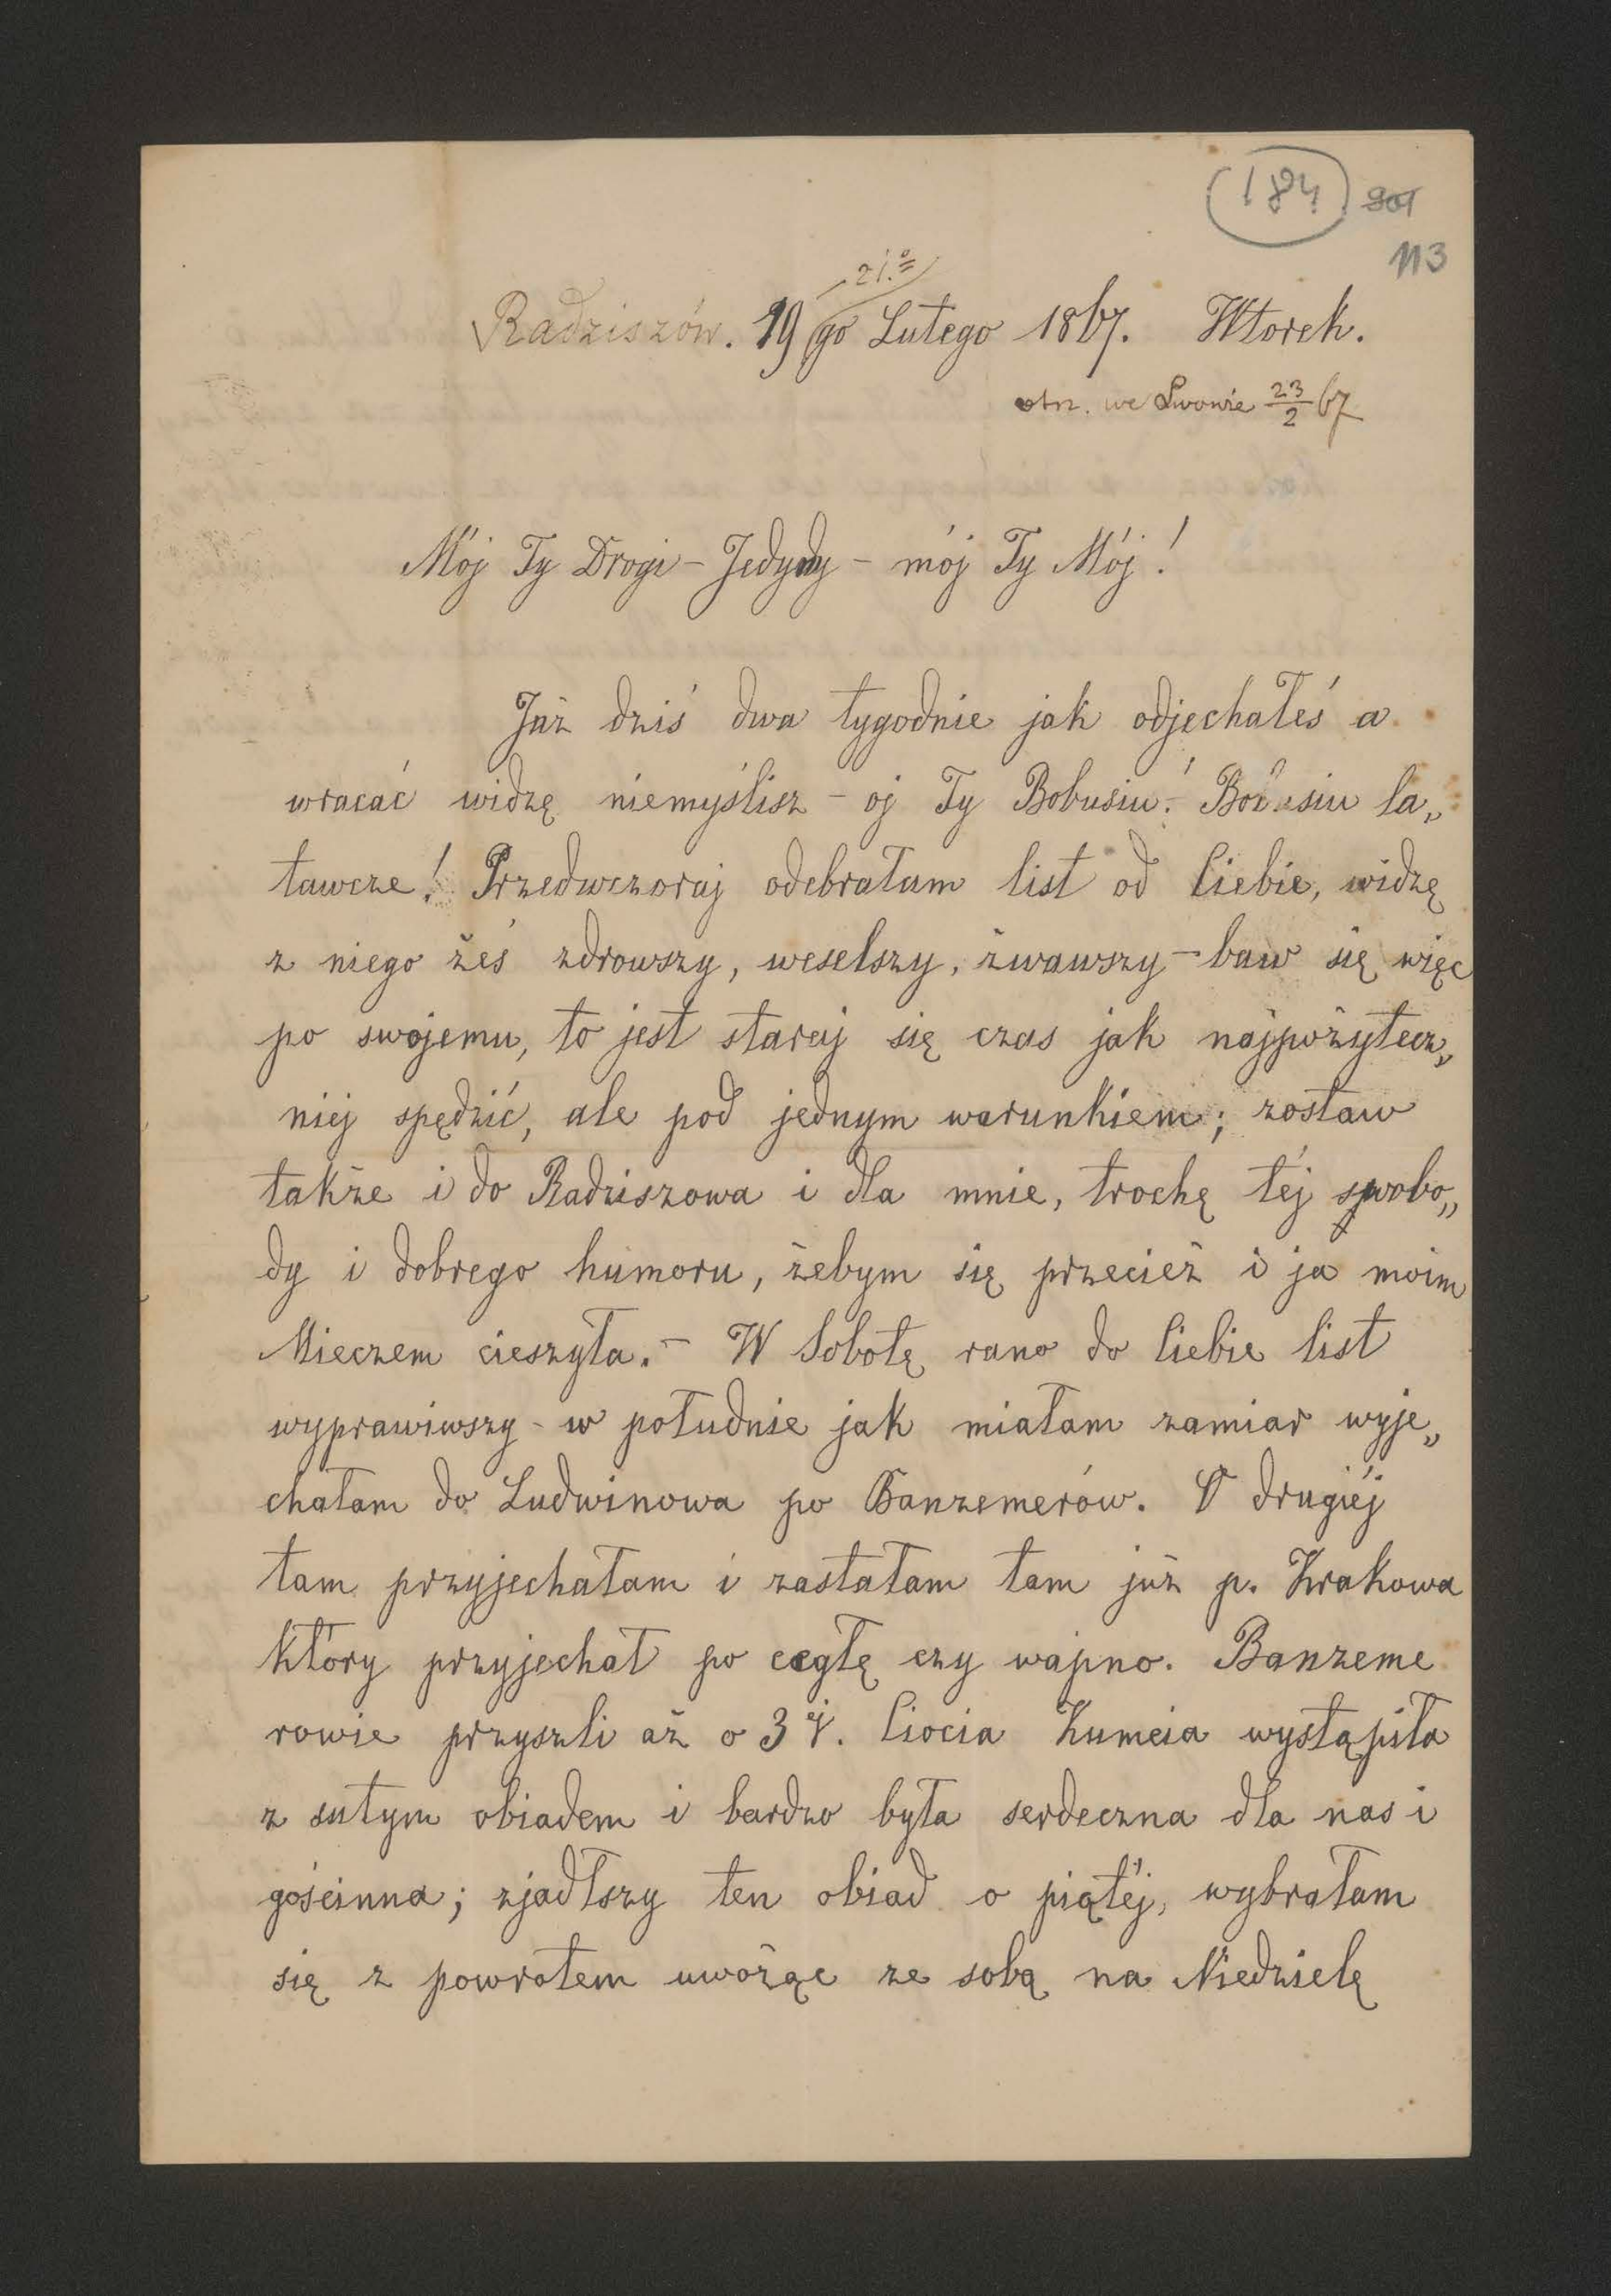 184
113
21.º
Radziszów. 19go Lutego 1867. Wtorek.
otrz. we Lwowie 23/2 67
Mój Ty Drogi – Jedyny – mój Ty Mój!
Już dziś dwa tygodnie jak odjechałeś a
wracać widzę niemyślisz – oj Ty Bobusiu! Bobusiu la„
tawcze! Przedwczoraj odebrałam list od Ciebie, widzę
z niego żeś zdrowszy, weselszy, żwawszy – baw się więc
po swojemu, to jest staraj się czas jak najpożytecz„
niej spędzić, ale pod jednym warunkiem; zostaw
także i do Radziszowa i dla mnie, trochę téj swobo„
dy i dobrego humoru, żebym się przecież i ja moim
Mieczem cieszyła. – W Sobotę rano do Ciebie list
wyprawiwszy – w południe jak miałam zamiar wyje„
chałam do Ludwinowa po Banzemerów. O drugiéj
tam przyjechałam i zastałam tam już p. Krakowa
który przyjechał po cegłę czy wapno. Banzeme
rowie przyszli aż o 3éj. Ciocia Kumcia wystąpiła
z sutym obiadem i bardzo była serdeczna dla nas i
gościnna; zjadłszy ten obiad o piątéj, wybrałam
się z powrotem uwożąc ze sobą na Niedzielę